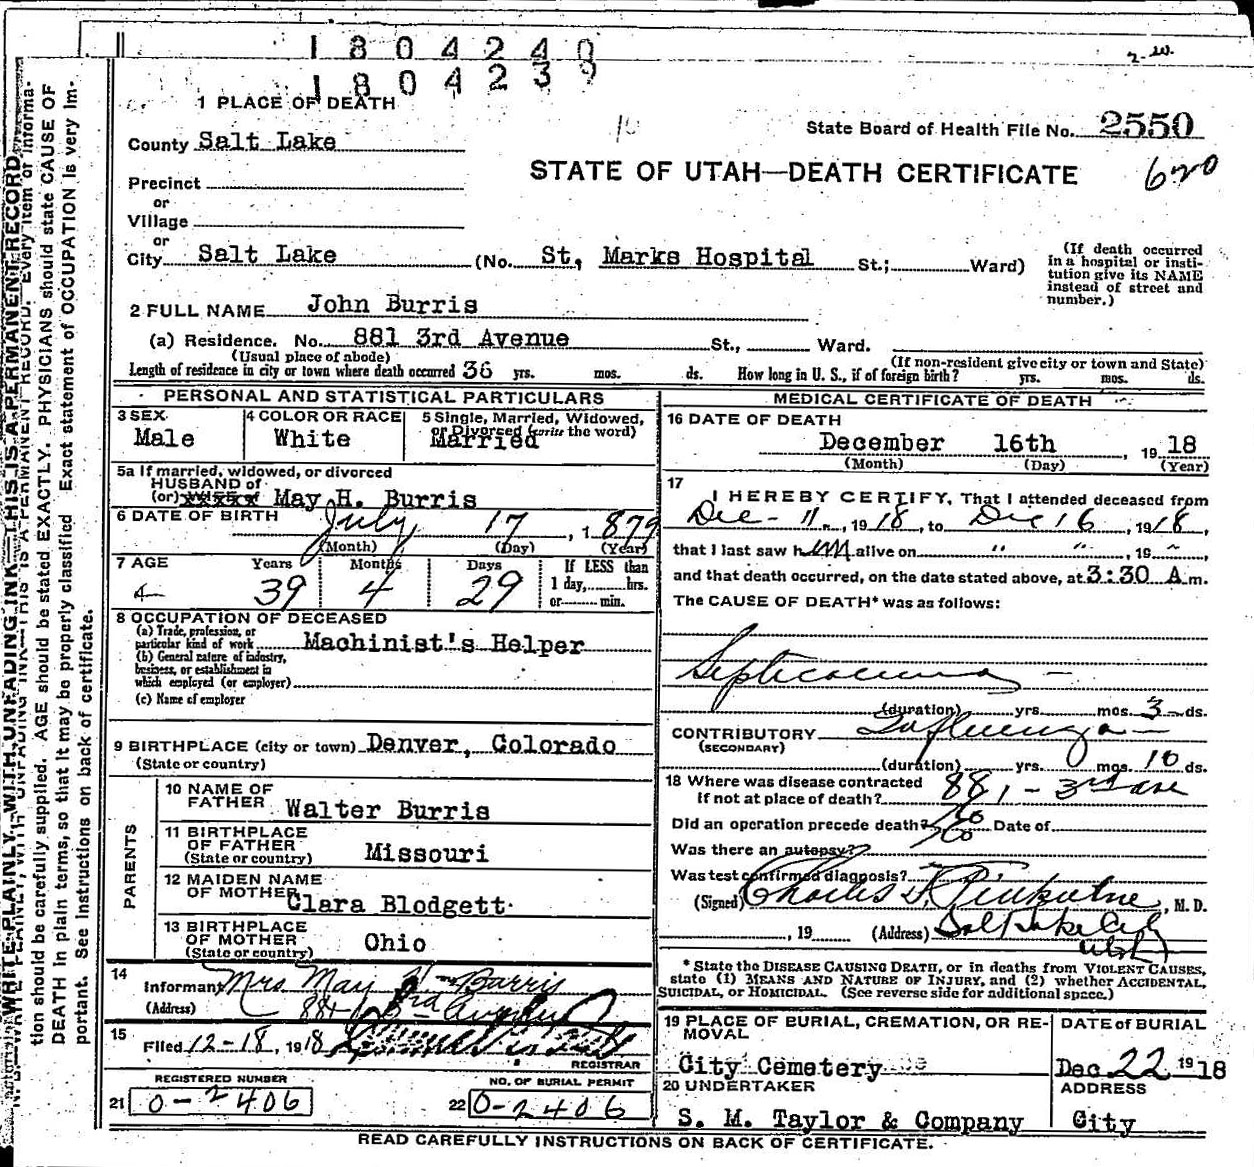 1804240
1804239
1 PLACE OF DEATH
State Board of Health File No. 2550
County Salt Lake
STATE OF UTAH—DEATH CERTIFICATE
620
Precinct
or
Village
or
City Salt Lake (No. St, Marks Hospital St.; Ward)
(If death occurred in a hospital or institution give its NAME instead of street and number.)
2 FULL NAME John Burris
(a) Residence. No. 881 3rd Avenue St., Ward.
(Usual place of abode) (If non-resident give city or town and State)
Length of residence in city or town where death occurred 36 yrs. mos. ds. How long in U. S., if of foreign birth? yrs. mos. ds.
PERSONAL AND STATISTICAL PARTICULARS
3 SEX Male
4 COLOR OR RACE White
5 Single, Married, Widowed, or Divorced (write the word) Married
5a If married, widowed, or divorced
HUSBAND of
(or) May H. Burris
6 DATE OF BIRTH July 17, 1879
(Month) (Day) (Year)
7 AGE Years Months Days If LESS than
39 4 29 1 day, hrs.
or min.
8 OCCUPATION OF DECEASED
(a) Trade, profession, or
particular kind of work Machinist's Helper
(b) General nature of industry,
business, or establishment in
which employed (or employer)
(c) Name of employer
9 BIRTHPLACE (city or town) Denver, Colorado
(State or country)
PARENTS
10 NAME OF FATHER Walter Burris
11 BIRTHPLACE OF FATHER (State or country) Missouri
12 MAIDEN NAME OF MOTHER Clara Blodgett
13 BIRTHPLACE OF MOTHER (State or country) Ohio
14
Informant Mrs May H. Burris
(Address) 881 3rd Avenue
15 Filed 12-18, 1918
REGISTRAR
REGISTERED NUMBER
21 0-2406
NO. OF BURIAL PERMIT
22 0-2406
MEDICAL CERTIFICATE OF DEATH
16 DATE OF DEATH
December 16th, 1918
(Month) (Day) (Year)
17 I HEREBY CERTIFY, That I attended deceased from
Dec - 11, 1918, to Dec 16, 1918,
that I last saw him alive on " ", 19 ",
and that death occurred, on the date stated above, at 3:30 A m.
The CAUSE OF DEATH* was as follows:
Septicaemia
(duration) yrs. mos. 3 ds.
CONTRIBUTORY Influenza
(SECONDARY)
(duration) yrs. mos. 10 ds.
18 Where was disease contracted
if not at place of death? 881 - 3rd ave
Did an operation precede death? No Date of
Was there an autopsy? No
Was test confirmed diagnosis?
(Signed) Charles , M. D.
, 19 (Address) Salt Lake City
Utah
* State the DISEASE CAUSING DEATH, or in deaths from VIOLENT CAUSES,
state (1) MEANS AND NATURE OF INJURY, and (2) whether ACCIDENTAL,
SUICIDAL, or HOMICIDAL. (See reverse side for additional space.)
19 PLACE OF BURIAL, CREMATION, OR REMOVAL
City Cemetery
DATE of BURIAL
Dec 22 1918
20 UNDERTAKER
S. M. Taylor & Company
ADDRESS
City
READ CAREFULLY INSTRUCTIONS ON BACK OF CERTIFICATE.
WRITE PLAINLY, WITH UNFADING INK—THIS IS A PERMANENT RECORD
tion should be carefully supplied. AGE should be stated EXACTLY. PHYSICIANS should state CAUSE OF
DEATH in plain terms, so that it may be properly classified. Exact statement of OCCUPATION is very im-
portant. See instructions on back of certificate.